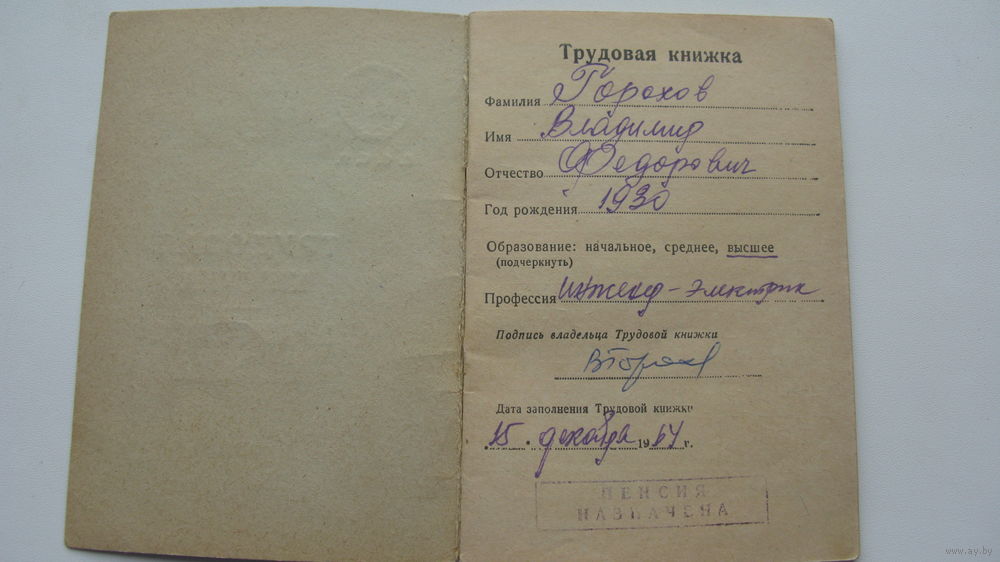 Трудовая книжка
Фамилия Горохов
Имя Владимир
Отчество Федорович
Год рождения 1930
Образование: начальное, среднее, высшее
(подчеркнуть)
Профессия инженер-электрик
Подпись владельца Трудовой книжки
ВГорохов
Дата заполнения Трудовой книжки
15 декабря 1964 г.
ПЕНСИЯ
НАЗНАЧЕНА
www.ay.by